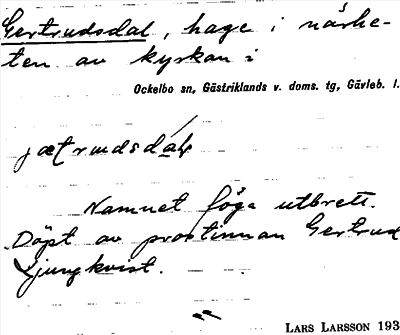 Gertrudsdal, hage i närhe-
ten av kyrkan i
Ockelbo sn, Gästriklands v. doms. tg, Gävleb. l.
Namnet föga utbrett.
Döpt av prostinnan Gertrud
Ljungkvist.
LARS LARSSON 193